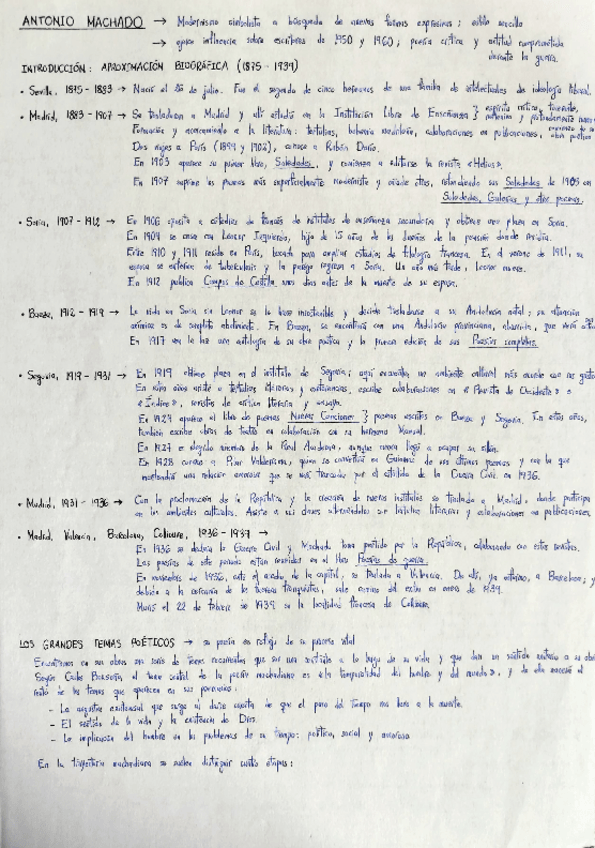 ANTONIO MACHADO → Modernismo simbolista a búsqueda de nuevas formas expresivas; estilo sencillo
→ gran influencia sobre escritores de 1950 y 1960; poesía crítica y actitud comprometida
durante la guerra.
INTRODUCCIÓN: APROXIMACIÓN BIOGRÁFICA (1875 - 1939)
• Sevilla, 1875 - 1883 → Nació el 26 de julio. Fue el segundo de cinco hermanos de una familia de intelectuales de ideología liberal.
• Madrid, 1883 - 1907 → Se trasladaron a Madrid y allí estudió en la Institución Libre de Enseñanza } espíritu crítico, tolerante,
Formación y acercamiento a la literatura: tertulias, bohemia madrileña, colaboraciones en publicaciones,
Dos viajes a París (1899 y 1902), conoce a Rubén Darío.
En 1903 aparece su primer libro, Soledades, y comienza a editarse la revista «Helios».
En 1907 suprime los poemas más superficialmente modernistas y añade otros, refundiendo sus Soledades de 1903 en
Soledades, Galerías y otros poemas.
• Soria, 1907 - 1912 → En 1906 oposita a cátedras de francés de institutos de enseñanza secundaria y obtiene una plaza en Soria.
En 1909 se casa con Leonor Izquierdo, hija de 15 años de los dueños de la pensión donde residía.
Entre 1910 y 1911 reside en París, becado para ampliar estudios de filología francesa. En el verano de 1911, su
esposa se enferma de tuberculosis y la pareja regresa a Soria. Un año más tarde, Leonor muere.
En 1912 publica Campos de Castilla, unos días antes de la muerte de su esposa.
• Baeza, 1912 - 1919 → La vida en Soria sin Leonor se le hace insoportable y decide trasladarse a su Andalucía natal; su situación
anímica es de completo abatimiento. En Baeza, se encontrará con una Andalucía provinciana, aburrida, que
En 1917 ven la luz una antología de su obra poética y la primera edición de sus Poesías completas.
• Segovia, 1919 - 1931 → En 1919 obtiene plaza en el instituto de Segovia; aquí encuentra un ambiente cultural más acorde con sus gustos
En estos años asiste a tertulias literarias y escribe colaboraciones en «Revista de Occidente» o
«Índice», revistas de crítica literaria y ensayo.
En 1924 aparece el libro de poemas Nuevas Canciones } poemas escritos en Baeza y Segovia. En estos años,
también escribe obras de teatro en colaboración con su hermano Manuel.
En 1927 es elegido miembro de la Real Academia, aunque nunca llegó a ocupar su sillón.
En 1928 conoce a Pilar Valderrama, quien se convertirá en Guiomar de sus últimos poemas y con la que
mantendrá una relación amorosa que se verá truncada por el estallido de la Guerra Civil en 1936.
• Madrid, 1931 - 1936 → Con la proclamación de la República y la creación de nuevos institutos se traslada a Madrid, donde participa
en los ambientes culturales. Asiste a sus clases tertulias literarias y colaboraciones en publicaciones.
• Madrid, Valencia, Barcelona, Colliure, 1936 - 1939 →
En 1936 se declara la Guerra Civil y Machado toma partido por la República, colaborando con estos escritos.
Las poesías de este periodo están reunidas en el libro Poesías de guerra.
En noviembre de 1936, ante el asedio de la capital, se traslada a Valencia. De allí, ya enfermo, a Barcelona; y
debido a la cercanía de las tropas franquistas, sale camino del exilio en enero de 1939.
Murió el 22 de febrero de 1939 en la localidad francesa de Colliure.
LOS GRANDES TEMAS POÉTICOS → su poesía es reflejo de su postura vital
Encontramos en sus obras una serie de temas recurrentes que son una constante a lo largo de su vida y que dan un sentido unitario a su obra
Según Carlos Bousoño, el tema central de la poesía machadiana es «la temporalidad del hombre y del mundo», y de ella procede el
resto de los temas que aparecen en sus poemarios:
- La angustia existencial que surge al darse cuenta de que el paso del tiempo nos lleva a la muerte.
- El sentido de la vida y la existencia de Dios.
- La implicación del hombre en los problemas de su tiempo: político, social y amoroso
En la trayectoria machadiana se suelen distinguir cuatro etapas: